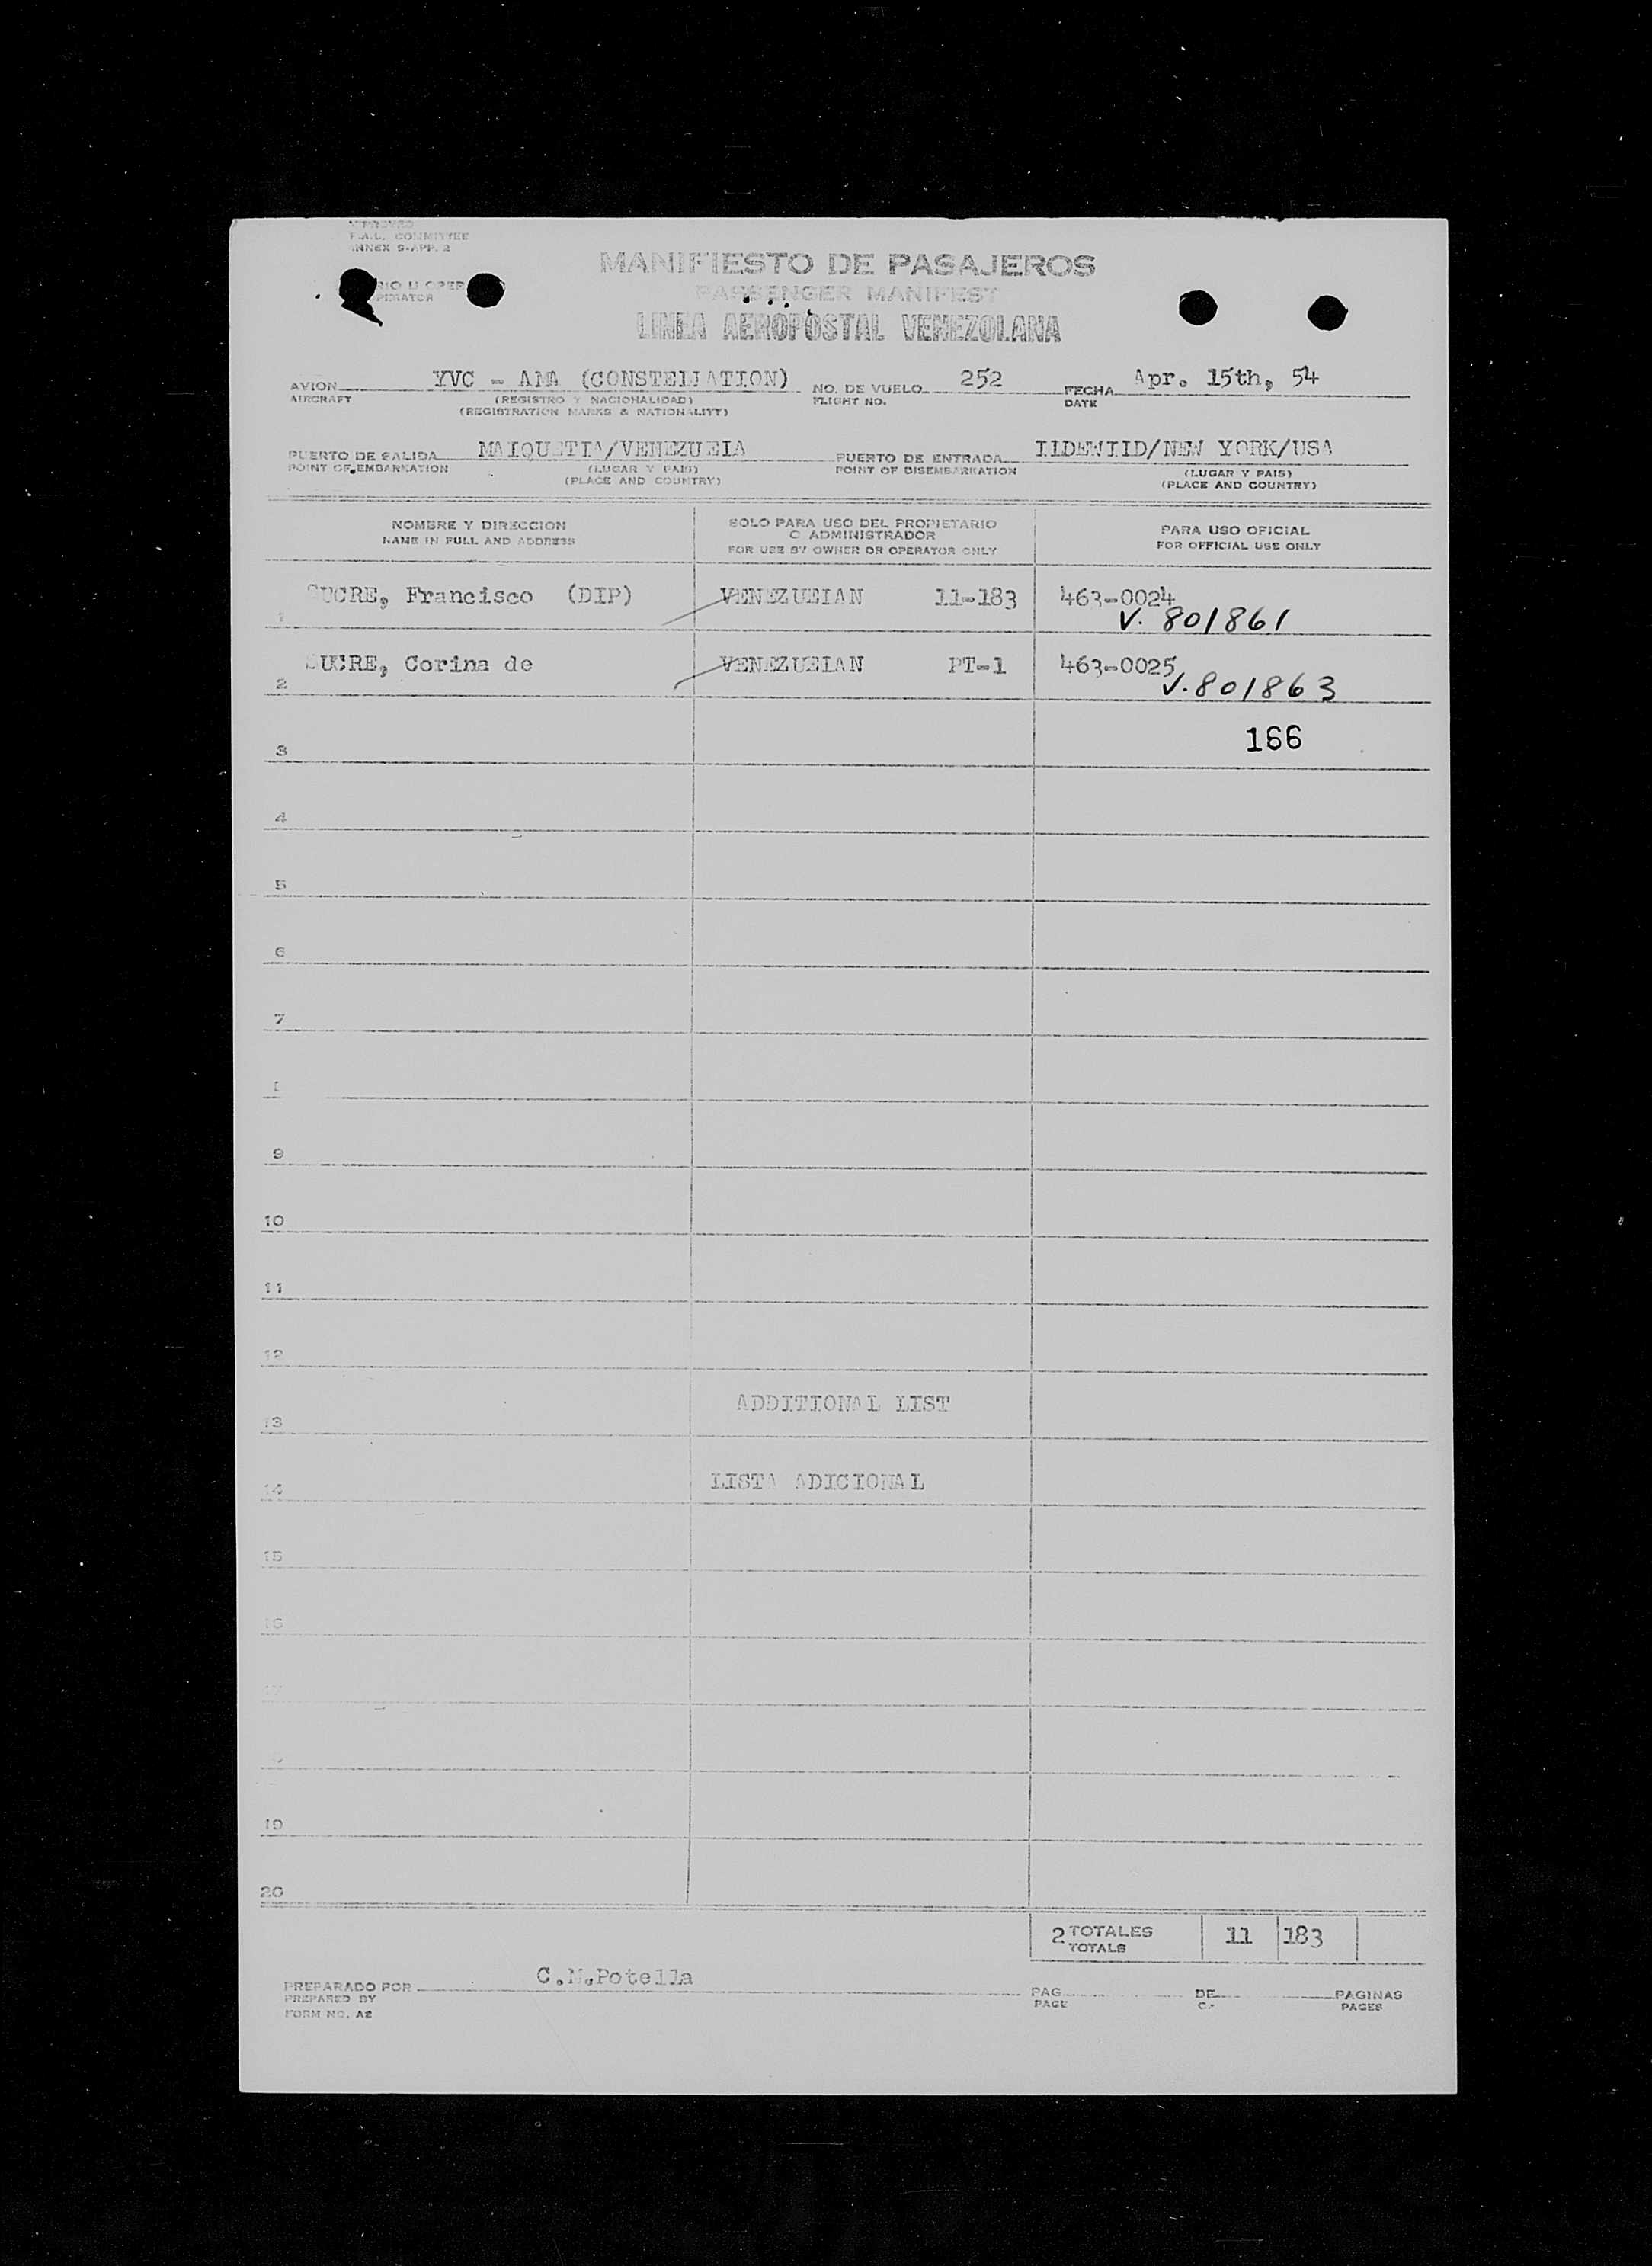 F.A.L. COMMITTEE
ANNEX 9-APP. 2
MANIFIESTO DE PASAJEROS
PASSENGER MANIFEST
LINEA AEROPOSTAL VENEZOLANA
AVION YVC - AMA (CONSTELLATION) NO. DE VUELO 252 FECHA Apr. 15th, 54
AIRCRAFT (REGISTRO Y NACIONALIDAD) FLIGHT NO. DATE
(REGISTRATION MARKS & NATIONALITY)
PUERTO DE SALIDA MAIQUETIA/VENEZUELA PUERTO DE ENTRADA IDLEWILD/NEW YORK/USA
POINT OF EMBARKATION (LUGAR Y PAIS) POINT OF DISEMBARKATION (LUGAR Y PAIS)
(PLACE AND COUNTRY) (PLACE AND COUNTRY)
NOMBRE Y DIRECCION SOLO PARA USO DEL PROPIETARIO O ADMINISTRADOR PARA USO OFICIAL
NAME IN FULL AND ADDRESS FOR USE BY OWNER OR OPERATOR ONLY FOR OFFICIAL USE ONLY
1 SUCRE, Francisco (DIP) VENEZUELAN 11-183 463-0024
V. 801861
2 SUCRE, Corina de VENEZUELAN PT-1 463-0025
V. 801863
3 166
4
5
6
7
9
10
11
12
13 ADDITIONAL LIST
14 LISTA ADICIONAL
15
16
19
20
2 TOTALES 11 183
TOTALS
PREPARADO POR C.M.Potella PAG. DE PAGINAS
PREPARED BY PAGE PAGES
FORM NO. A2